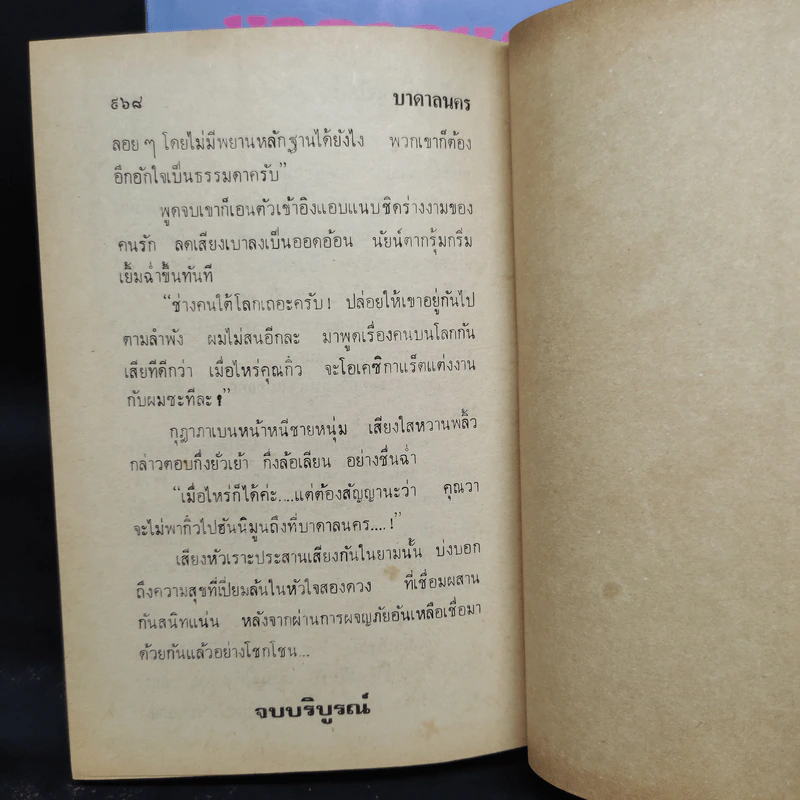 ๙๖๘ บาดาลนคร
ลอย ๆ โดยไม่มีพยานหลักฐานได้ยังไง พวกเขาก็ต้อง
อึกอักใจเป็นธรรมดาครับ”
พูดจบเขาก็เอนตัวเข้าอิงแอบแนบชิดร่างงามของ
คนรัก ลดเสียงเบาลงเป็นออดอ้อน นัยน์ตากรุ้มกริ่ม
เยิ้มฉ่ำขึ้นทันที
“ช่างคนใต้โลกเถอะครับ! ปล่อยให้เขาอยู่กันไป
ตามลำพัง ผมไม่สนอีกละ มาพูดเรื่องคนบนโลกกัน
เสียทีดีกว่า เมื่อไหร่คุณกิ๋ว จะโอเคซิกาแร็ตแต่งงาน
กับผมซะทีละ!”
กุฎาภาเบนหน้าหนีชายหนุ่ม เสียงใสหวานพลิ้ว
กล่าวตอบกึ่งยั่วเย้า กึ่งล้อเลียน อย่างชื่นฉ่ำ
“เมื่อไหร่ก็ได้ค่ะ....แต่ต้องสัญญานะว่า คุณวา
จะไม่พากิ๋วไปฮันนิมูนถึงที่บาดาลนคร....!”
เสียงหัวเราะประสานเสียงกันในยามนั้น บ่งบอก
ถึงความสุขที่เปี่ยมล้นในหัวใจสองดวง ที่เชื่อมผสาน
กันสนิทแน่น หลังจากผ่านการผจญภัยอันเหลือเชื่อมา
ด้วยกันแล้วอย่างโชกโชน...
จบบริบูรณ์